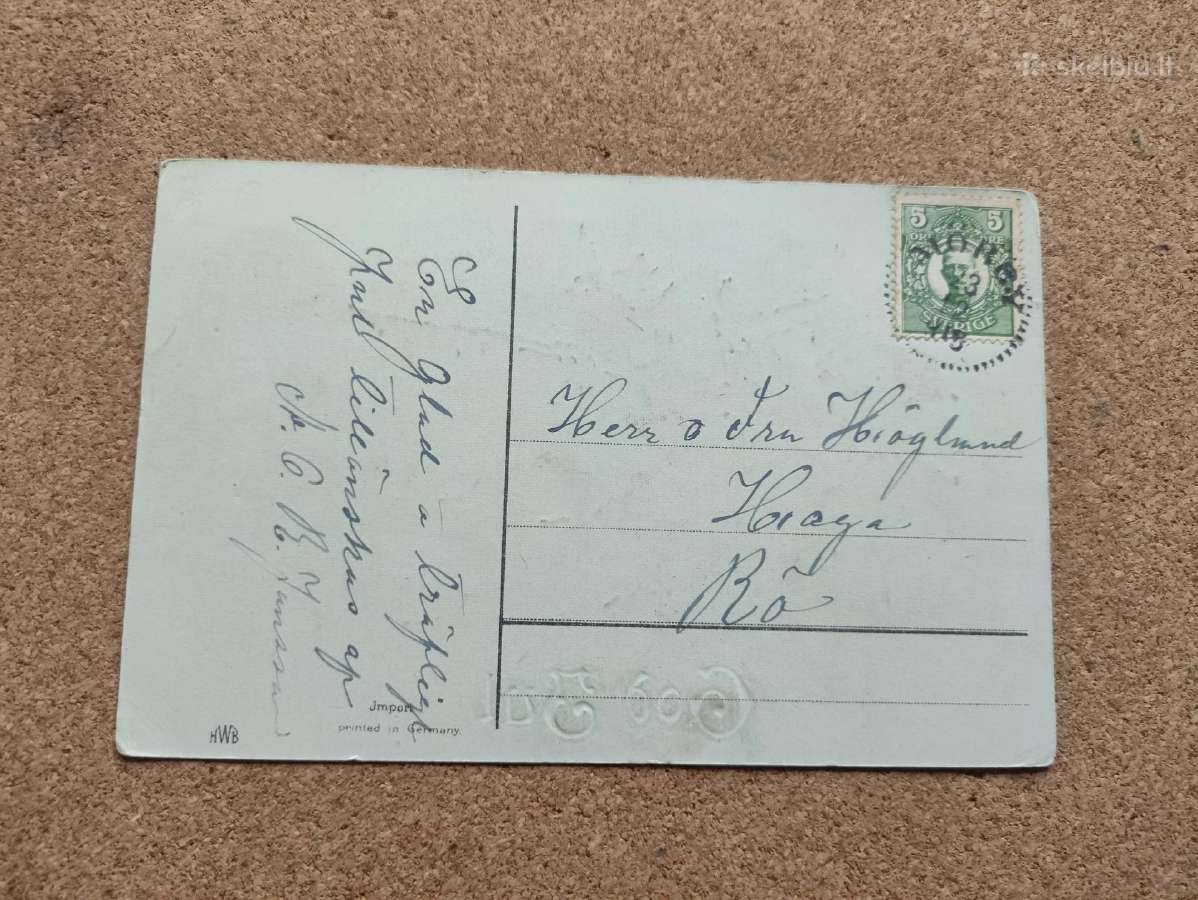 skelbiu.lt
5 5
SVERIGE
En Glad o träfligt
Jul tillönskas af
A. E. R. Jansson
Herr o Fru Höglund
Haga
Rö
God Jul
Jmport
printed in Germany.
HWB